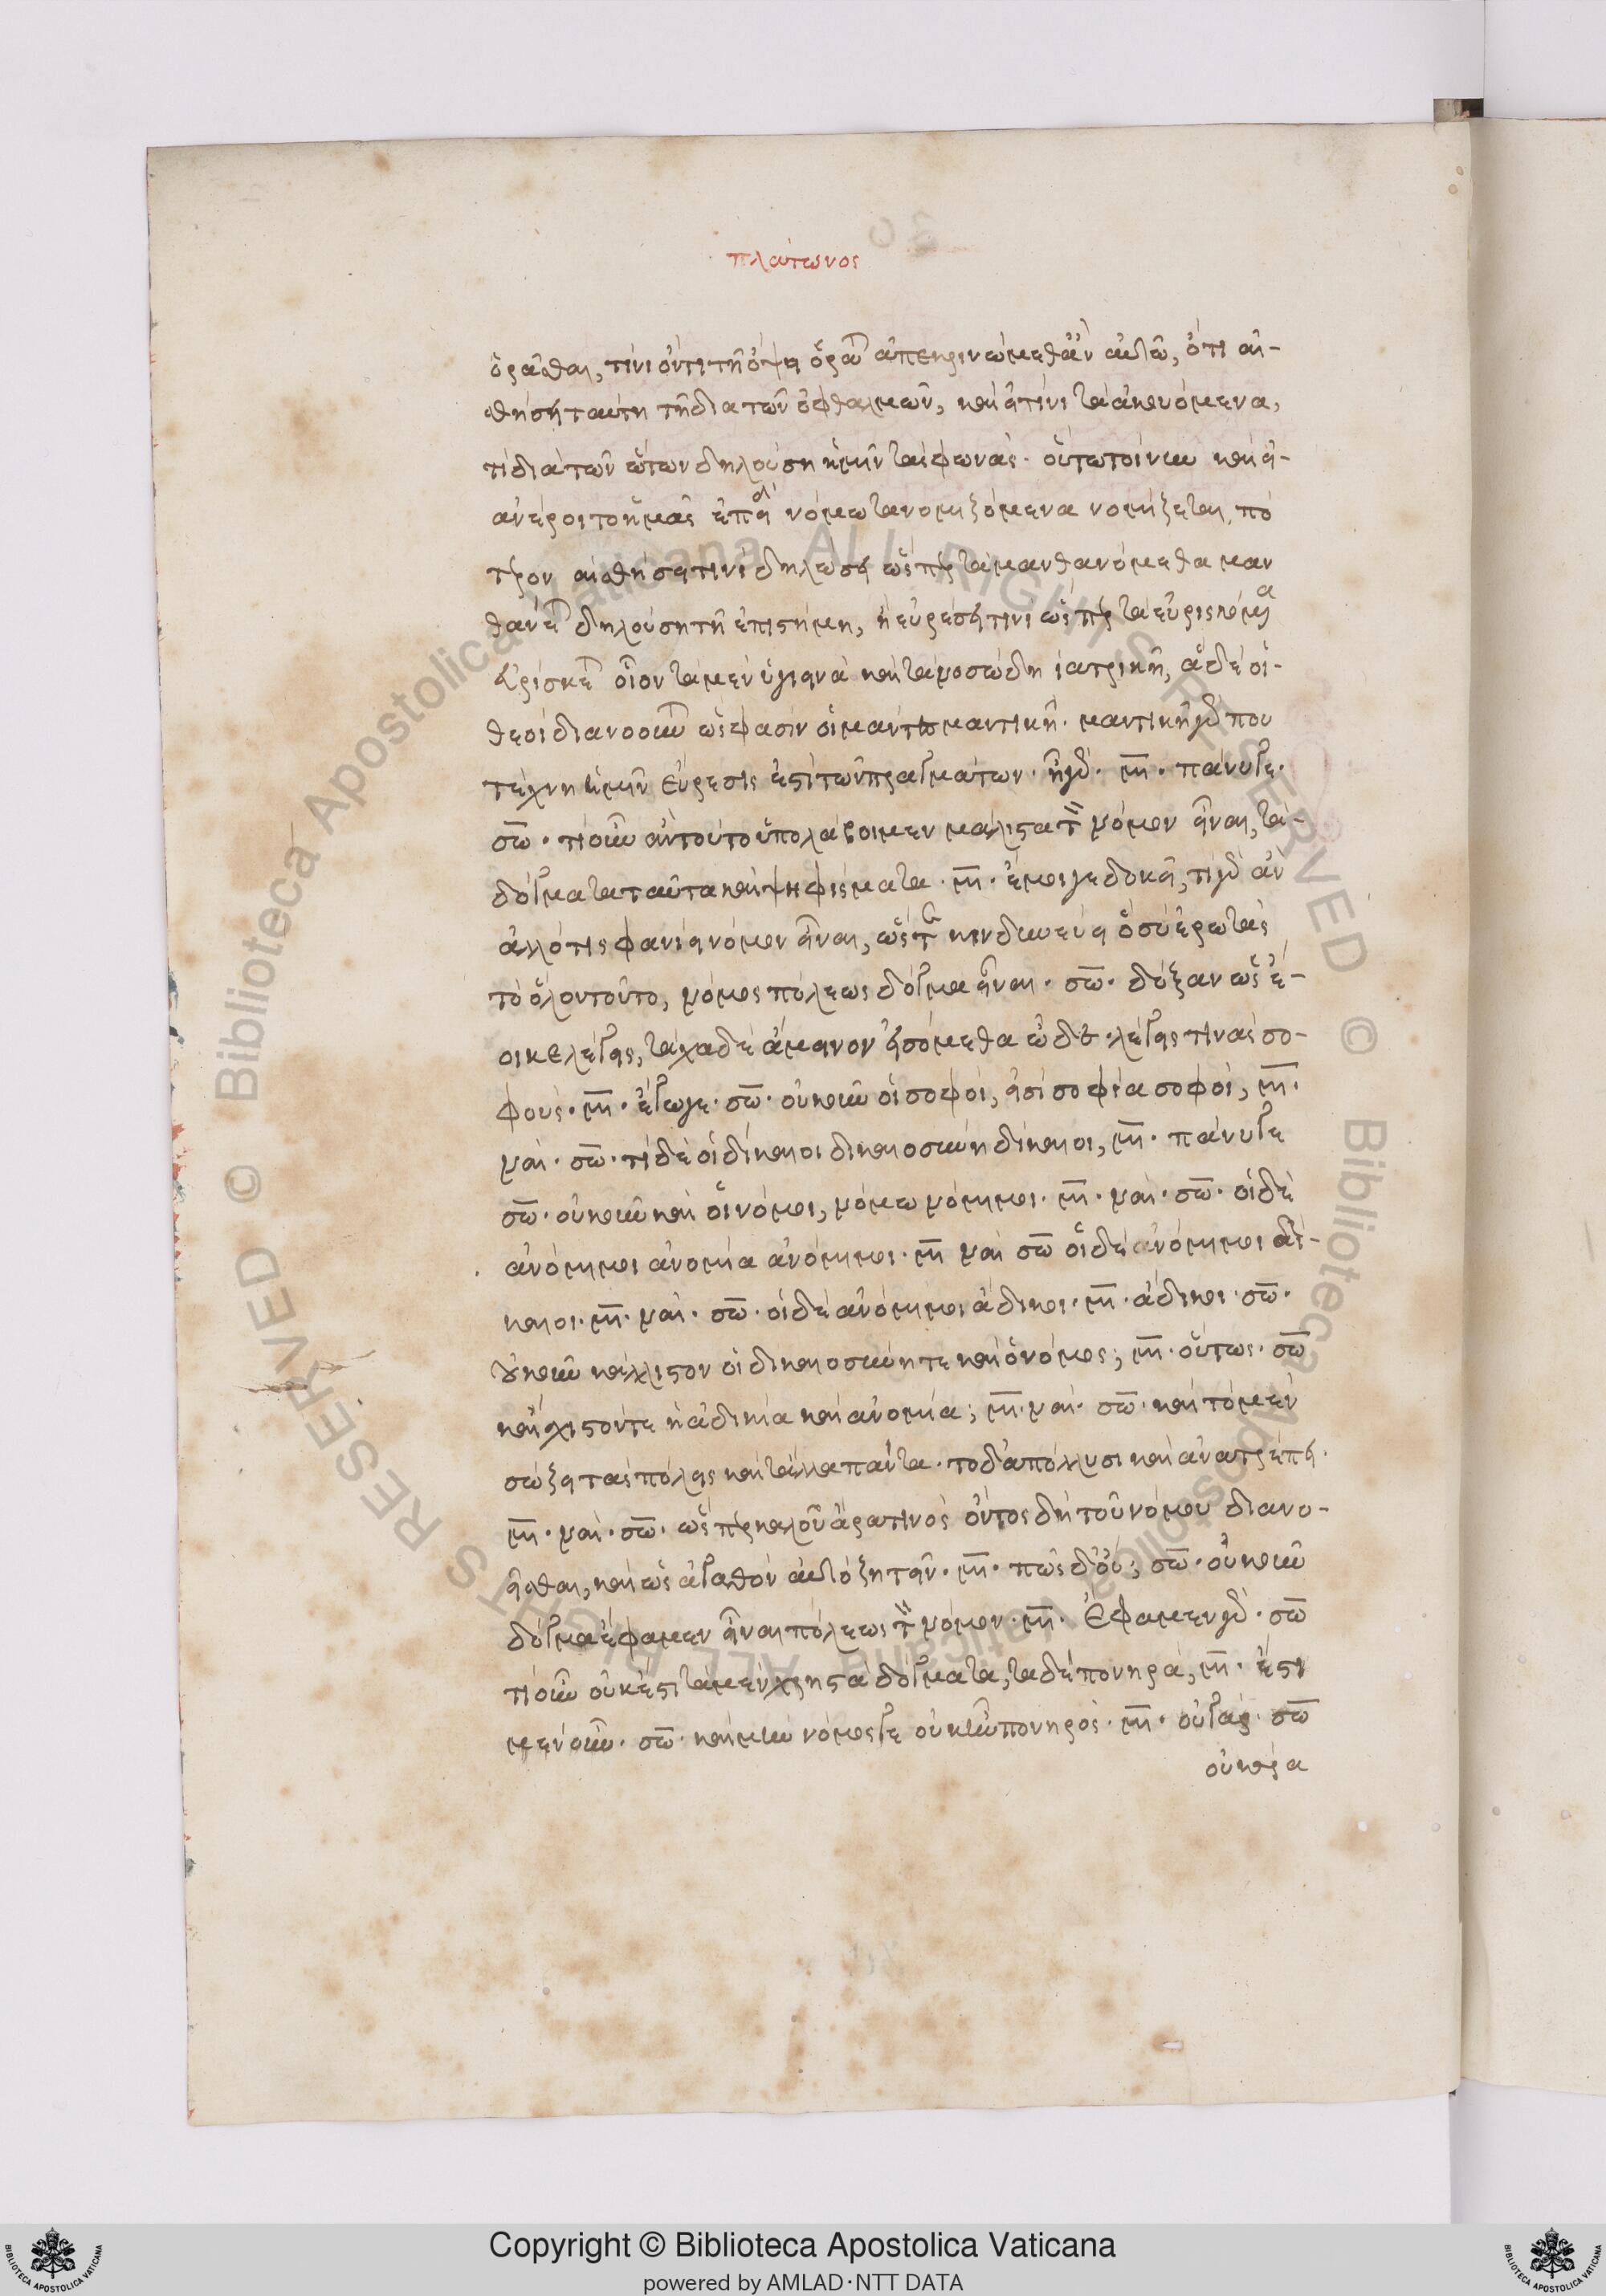 πλάτωνος
ὁρᾶσθαι, τίνι ὄντι τῇ ὄψει ὁρᾶται ἀπεκρινώμεθἂν αὐτῶ, ὅτι αἰ-
σθήσει ταύτη τῇ διὰ τῶν ὀφθαλμῶν, καὶ εἰ τίνι τὰ ἀκουόμενα,
τῆ διὰ τῶν ὤτων δηλούση ἡμῖν τὰς φωνάς. οὕτω τοίνυν καὶ εἰ-
ἀνέροιτο ἡμᾶς ἐπειδὴ νόμω τὰ νομιζόμενα νομίζεται, πό
τερον αἰσθήσει τινὶ δηλώσει ὥσπερ τὰ μανθανόμεθα μαν
θάνεται δηλούση τῇ ἐπιστήμη, ἢ εὑρέσει τινὶ ὥσπερ τὰ εὑρισκόμενα
εὑρίσκεται οἷον τὰ μὲν ὑγιεινὰ καὶ τὰ νοσώδη ἰατρικῆ, ἃ δὲ οἱ-
θεοὶ διανοοῦνται ὥς φασὶν οἱ μάντεις μαντικῆ. μαντικὴ γάρ που
τέχνη ἡμῖν εὕρεσις ἐστὶ τῶν πραγμάτων. ἦ γάρ. μι. πάνυ γε.
σω. τί οὖν ἂν τοῦτο ὑπολάβοιμεν μάλιστα τὸν νόμον εἶναι, τὰ-
δόγματα ταῦτα καὶ ψηφίσματα. μι. ἔμοι γε δοκεῖ, τί γὰρ ἂν
ἄλλό τις φανείη νόμον εἶναι, ὥστε κινδυνεύει ὃ σὺ ἐρωτᾶς
τὸ ὅλον τοῦτο, νόμος πόλεως δόγμα εἶναι. σω. δόξαν ὡς ἔ-
οικε λέγεις, τάχα δὲ ἄμεινον εἰσόμεθα ὧδε. λέγεις τινὰς σο-
φούς. μι. ἔγωγε. σω. οὐκοῦν οἱ σοφοί, εἰσὶ σοφία σοφοί, μι.
ναί. σω. τί δὲ οἱ δίκαιοι δικαιοσύνη δίκαιοι, μι. πάνυ γε
σω. οὐκοῦν καὶ οἱ νόμοι, νόμω νόμιμοι. μι. ναί. σω. οἱ δὲ
ἀνόμιμοι ἀνομία ἀνόμιμοι. μι ναὶ σω οἱ δὲ ἀνόμιμοι δί-
καιοι. μι. ναί. σω. οἱ δὲ ἀνόμιμοι ἄδικοι. μι. ἄδικοι. σω.
οὐκοῦν κάλλιστον οἱ δικαιοσύνη τε καὶ ὁ νόμος; μι. οὕτως. σω
καὶ αἴσχιστόν τε ἡ ἀδικία καὶ ἀνομία; μι. ναί. σω. καὶ τὸ μὲν
σώζει τὰς πόλεις καὶ τἄλλα πάντα. τὸ δ' ἀπόλλυσι καὶ ἀνατρέπει.
μι. ναί. σω. ὥσπερ καλοῦ ἄρα τινὸς ὄντος δὴ τοῦ νόμου διανο-
εῖσθαι, καὶ ὡς ἀγαθὸν αὐτὸ ζητεῖν. μι. πῶς δ' οὔ; σω. οὐκοῦν
δόγμα ἔφαμεν εἶναι πόλεως τὸν νόμον. μι. Ἔφαμεν γάρ. σω
τί οὖν οὐκ ἔστι τὰ μὲν χρηστὰ δόγματα, τὰ δὲ πονηρά, μι. ἔστι
μὲν οὖν. σω. καὶ μὴν νόμος γε οὐκ ἦν πονηρός. μι. οὐ γάρ. σω
οὐκ ἄρα
Copyright © Biblioteca Apostolica Vaticana
powered by AMLAD·NTT DATA